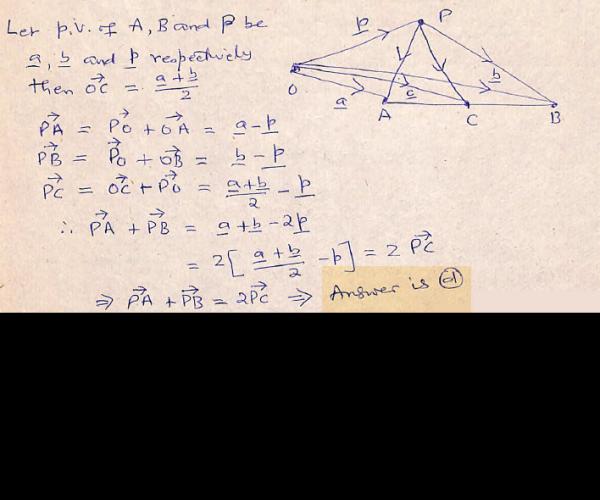 Let p.v. of A, B and P be
a, b and p respectively
then OC→ = a+b/2
PA→ = PO→ + OA→ = a - p
PB→ = PO→ + OB→ = b - p
PC→ = OC→ + PO→ = a+b/2 - p
∴ PA→ + PB→ = a + b - 2p
= 2[ a+b/2 - p ] = 2 PC→
⇒ PA→ + PB→ = 2PC→ ⇒ Answer is (d)
P
p
b
O
a
c
A
C
B